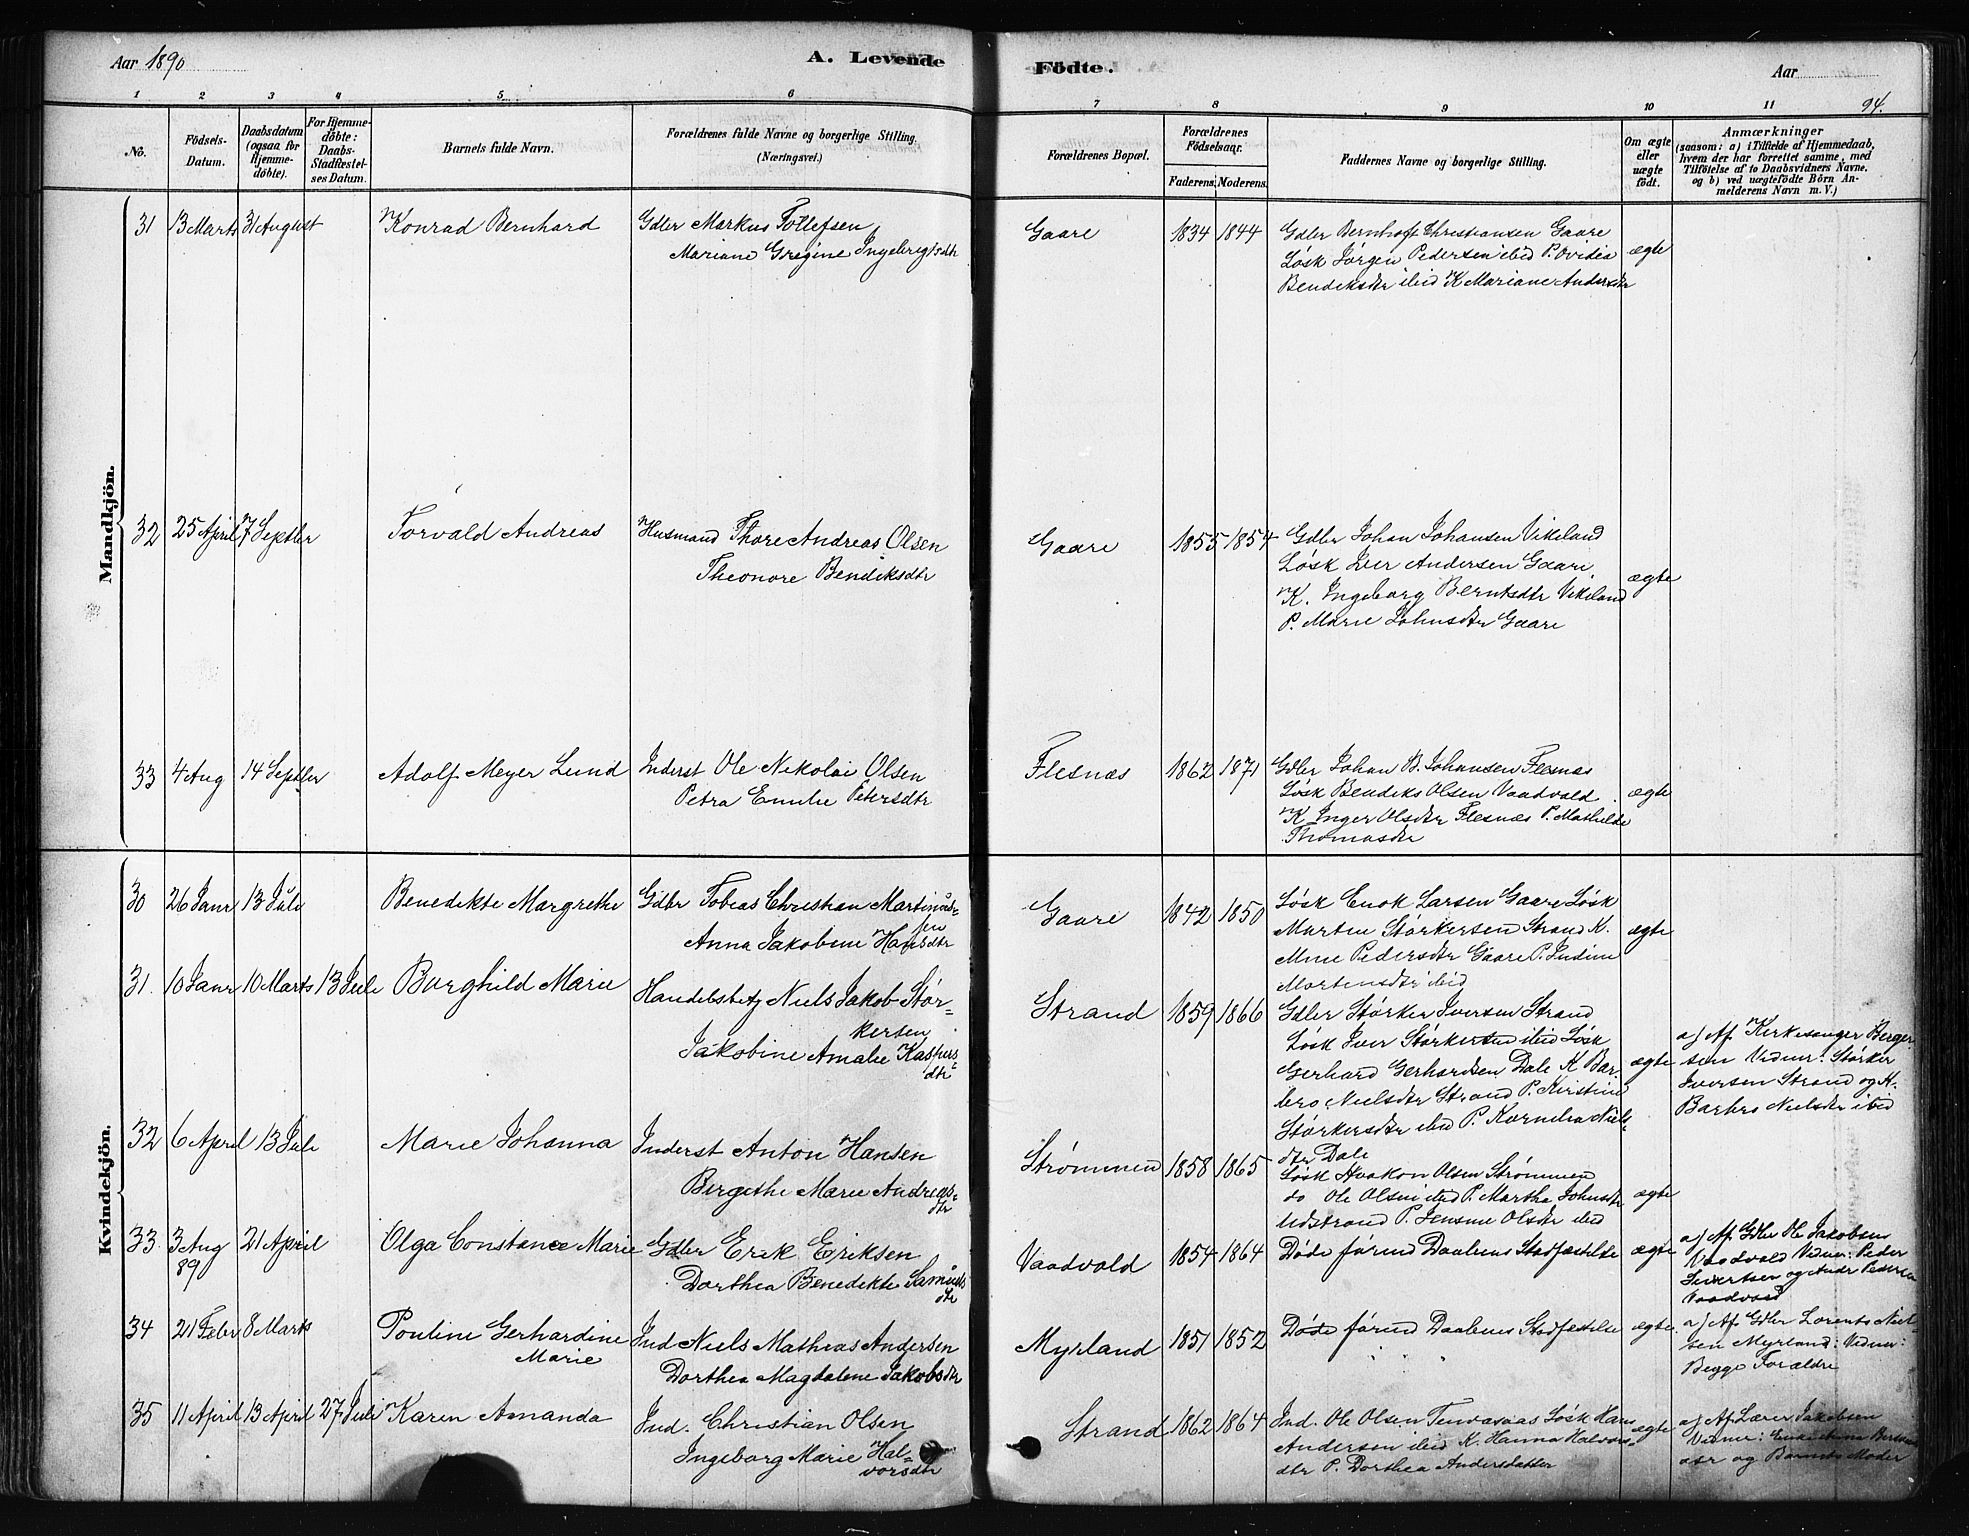 Aar 1890
A. Levende
Födte.
Aar
94.
1 2 3 4 5 6 7 8 9 10 11
No.
Födsels-
Datum.
Daabsdatum
(ogsaa for
Hjemme-
döbte).
For Hjemme-
döbte:
Daabs-
Stadfæstel-
ses Datum.
Barnets fulde Navn.
Forældrenes fulde Navne og borgerlige Stilling.
(Næringsvei.)
Forældrenes Bopæl.
Forældrenes
Födselsaar.
Faderens. Moderens.
Faddernes Navne og borgerlige Stilling.
Om ægte
eller
uægte
födt.
Anmærkninger
(saasom: a) i Tilfælde af Hjemmedaab,
hvem der har forrettet samme, med
Tilföielse af to Daabsvidners Navne,
og b) ved uægtefödte Börn An-
melderens Navn m. V.)
Mandkjön.
31 13 Marts 31 August Konrad Bernhard
Gdbr Markus Tollefsen
Mariane Gregine Ingebrigtsdtr
Gaare 1834 1844
Gdbr Bernhoff Christiansen Gaare
Løsk Jørgen Pedersen ibid P. Ovidia
Bendiksdtr ibid K Mariane Andersdtr
ægte
32 25 April 7 Septbr Torvald Andreas
Husmand Thore Andreas Olsen
Theonore Bendiksdtr
Gaare 1855 1854
Gdbr Johan Johansen Vikeland
Løsk Iver Andersen Gaare
K. Ingeborg Berntsdtr Vikeland
P. Marie Johnsdtr Gaare
ægte
33 4 Aug 14 Septbr Adolf Meyer Lund
Inderst Ole Nikolai Olsen
Petra Emilie Petersdtr
Flesnæs 1862 1871
Gdbr Johan B. Johansen Flesnæs
Løsk Bendiks Olsen Vaadvold
K Inger Olsdtr Flesnæs P. Mathilde
Thomasdtr
ægte
Kvindekjön.
30 26 Janr 13 Juli Benedikte Margrethe
Gdbr Tobias Christian Martinus-
sen
Anna Jakobine Hansdtr
Gaare 1842 1850
Løsk Enok Larsen Gaare Løsk
Morten Størkersen Strand K.
Mine Pedersdtr Gaare P. Indine
Mortensdtr ibid
ægte
31. 10 Janr 10 Marts 13 Juli Borghild Marie
Handelsbetj Niels Jakob Stør-
kersen
Jakobine Amalie Kaspers-
dtr
Strand 1859 1866
Gdbr Størker Iversen Strand
Løsk Iver Størkersen ibid Løsk
Gerhard Gerhardsen Dale K Bar-
bero Nielsdtr Strand P. Kirstine
Størkersdtr ibid P. Kornelia Niels-
dtr Dale
ægte
a) Af Kirkesanger Berger-
sen Vidner: Størker
Iversen Strand og K.
Barbro Nielsdtr ibid
32 6 April 13 Juli Marie Johanna
Inderst Anton Hansen
Bergithe Marie Andreas-
dtr
Strømmen 1858 1865
Løsk Haakon Olsen Strømmen
do Ole Olsen ibid P. Martha Johnsdtr
Udstrand P. Jensine Olsdtr ibid
ægte
33. 3 Aug 89 21 April Olga Constance Marie
Gdbr Erik Eriksen
Dorthea Benedikte Samuels-
dtr
Vaadvold 1854 1864
Døde førend Daabens Stadfæstelse
ægte
a) Af Gdbr Ole Jakobsen
Vaadvold Vidner: Peder
Sivertsen og Andr Pedersen
Vaadvold
34 21 Febr 8 Marts Pouline Gerhardine
Marie
Ind Niels Mathias Andersen
Dorthea Magdalene Jakobsdtr
Myrland 1851 1852
Døde førend Daabens Stadfæstelse
ægte
a) Af Gdbr Lorents Niel-
sen Myrland: Vidner:
Begge Forældre
35 11 April 13 April 27 Juli Karen Amanda
Ind. Christian Olsen
Ingeborg Marie Hal-
vorsdtr
Strand 1862 1864
Ind. Ole Olsen Løsk Hans
Andersen ibid K. Hanna Halvors-
dtr P. Dorthea Andersdatter
ægte
a) Af Lærer Jakobsen
Vidner:
dtr og Barnets Moder